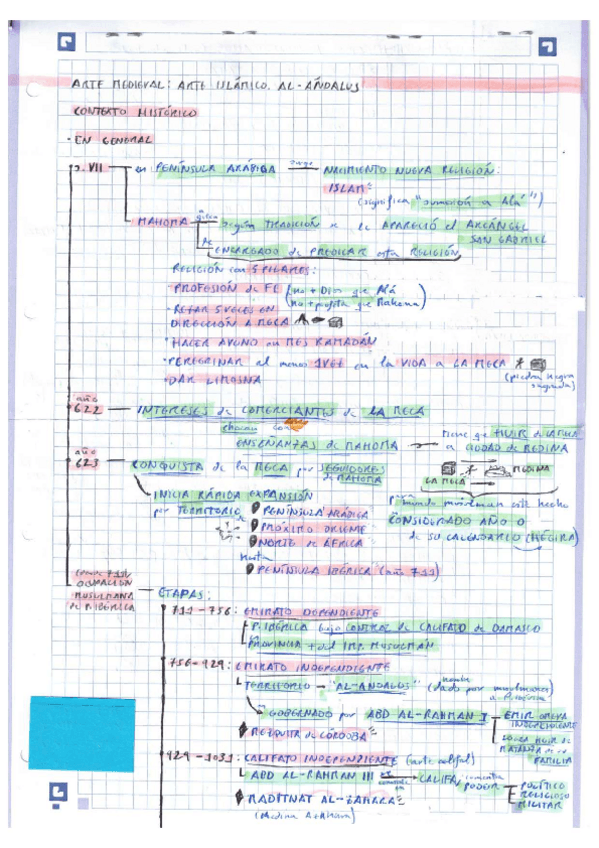 ARTE MEDIEVAL: ARTE ISLÁMICO. AL-ÁNDALUS
CONTEXTO HISTÓRICO
- EN GENERAL
s. VII en PENÍNSULA ARÁBIGA surge NACIMIENTO NUEVA RELIGIÓN:
ISLAM
(significa "sumisión a Alá")
MAHOMA según TRADICIÓN se le APARECIÓ el ARCÁNGEL
SAN GABRIEL
ENCARGADO de PREDICAR esta RELIGIÓN
RELIGIÓN con 5 PILARES:
- PROFESIÓN de FE (no + Dios que Alá
no + profeta que Mahoma)
- REZAR 5 VECES EN
DIRECCIÓN A MECA
- HACER AYUNO en MES RAMADÁN
- PEREGRINAR al menos 1 VEZ en la VIDA a LA MECA
(piedra negra
sagrada)
- DAR LIMOSNA
año
622 INTERESES de COMERCIANTES de LA MECA
chocan con
ENSEÑANZAS de MAHOMA → tiene que HUIR de
a CIUDAD de MEDINA
año
623 CONQUISTA de la MECA por SEGUIDORES
de MAHOMA
LA MECA → MEDINA
INICIA RÁPIDA EXPANSIÓN
por TERRITORIO de
PENÍNSULA ARÁBIGA
PRÓXIMO ORIENTE
NORTE de ÁFRICA
hasta
PENÍNSULA IBÉRICA (año 711)
para
mundo musulman este hecho
CONSIDERADO AÑO 0
de su CALENDARIO (HÉGIRA)
OCUPACIÓN
MUSULMANA
de P. IBÉRICA
ETAPAS:
711-756: EMIRATO DEPENDIENTE
P. IBÉRICA bajo CONTROL de CALIFATO de DAMASCO
PROVINCIA + del IMP. MUSULMÁN
756-929: EMIRATO INDEPENDIENTE
TERRITORIO → "AL-ANDALUS" (nombre dado por musulmanes
GOBERNADO por ABD AL-RAHMAN I
EMIR
INDEPENDIENTE
HUIR de
MATANZA de su
FAMILIA
MEZQUITA de CÓRDOBA
929-1031: CALIFATO INDEPENDIENTE (arte califal)
ABD AL-RAHMAN III → CALIFA,
PODER
POLÍTICO
RELIGIOSO
MILITAR
MADITNAT AL-ZAHARA
(Medina Azahara)